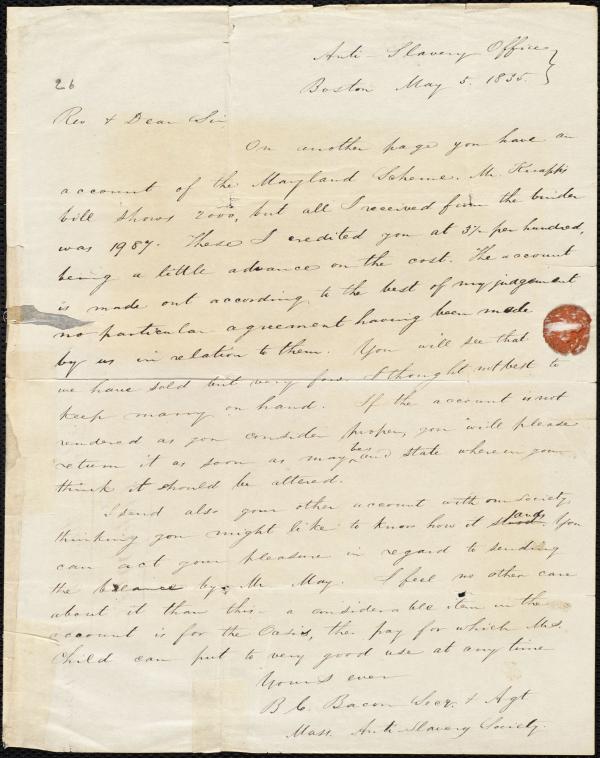 Anti-Slavery Office
Boston May 5. 1835.
26
Rev & Dear Sir
On another page you have an
account of the Maryland Scheme. Mr. Knapp's
bill shows 2000, but all I received from the binder
was 1987. These I credited you at 3¾ per hundred,
being a little advance on the cost. The account
is made out according to the best of my judgement
no particular agreement having been made
by us in relation to them. You will see that
we have sold but very few. I thought not best to
keep many on hand. If the account is not
rendered as you consider proper, you will please
return it as soon as may be, and state wherein you
think it should be altered.
I send also your other account with our society
thinking you might like to know how it stands. You
can act your pleasure in regard to sending
the balance by Mr. May. I feel no other care
about it than this - a considerable item in the
account is for the Oasis, the pay for which Mrs.
Child can put to very good use at any time
Yours ever
B C. Bacon Secy. & Agt
Mass. Anti Slavery Society.